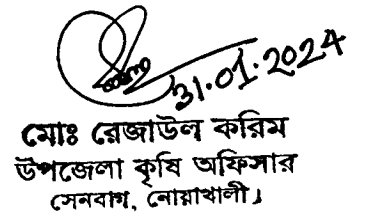 31.01.2024
মোঃ রেজাউল করিম
উপজেলা কৃষি অফিসার
সেনবাগ, নোয়াখালী।